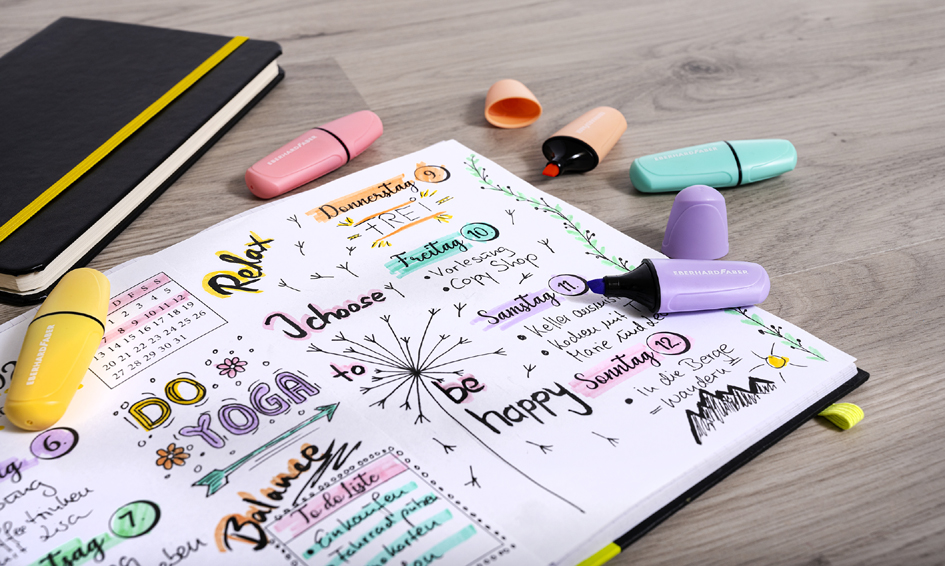 Donnerstag 9
FREi
Freitag 10
• Vorlesung
• Copy Shop
Samstag 11
• Keller
• Kochen mit
Marie und
Sonntag 12
• in die Berge
= Wandern
Relax
D F S S
1 2 3 4 5
8 9 10 11 12
13 14 15 16 17 18 19
20 21 22 23 24 25 26
27 28 29 30 31
I choose
to
be
happy
DO
YOGA
Balance
To do Liste
• Einkaufen
• Fahrrad
karten
6
Lisa
7
EBERHARD FABER
EBERHARD FABER
EBERHARD FABER
EBERHARD FABER